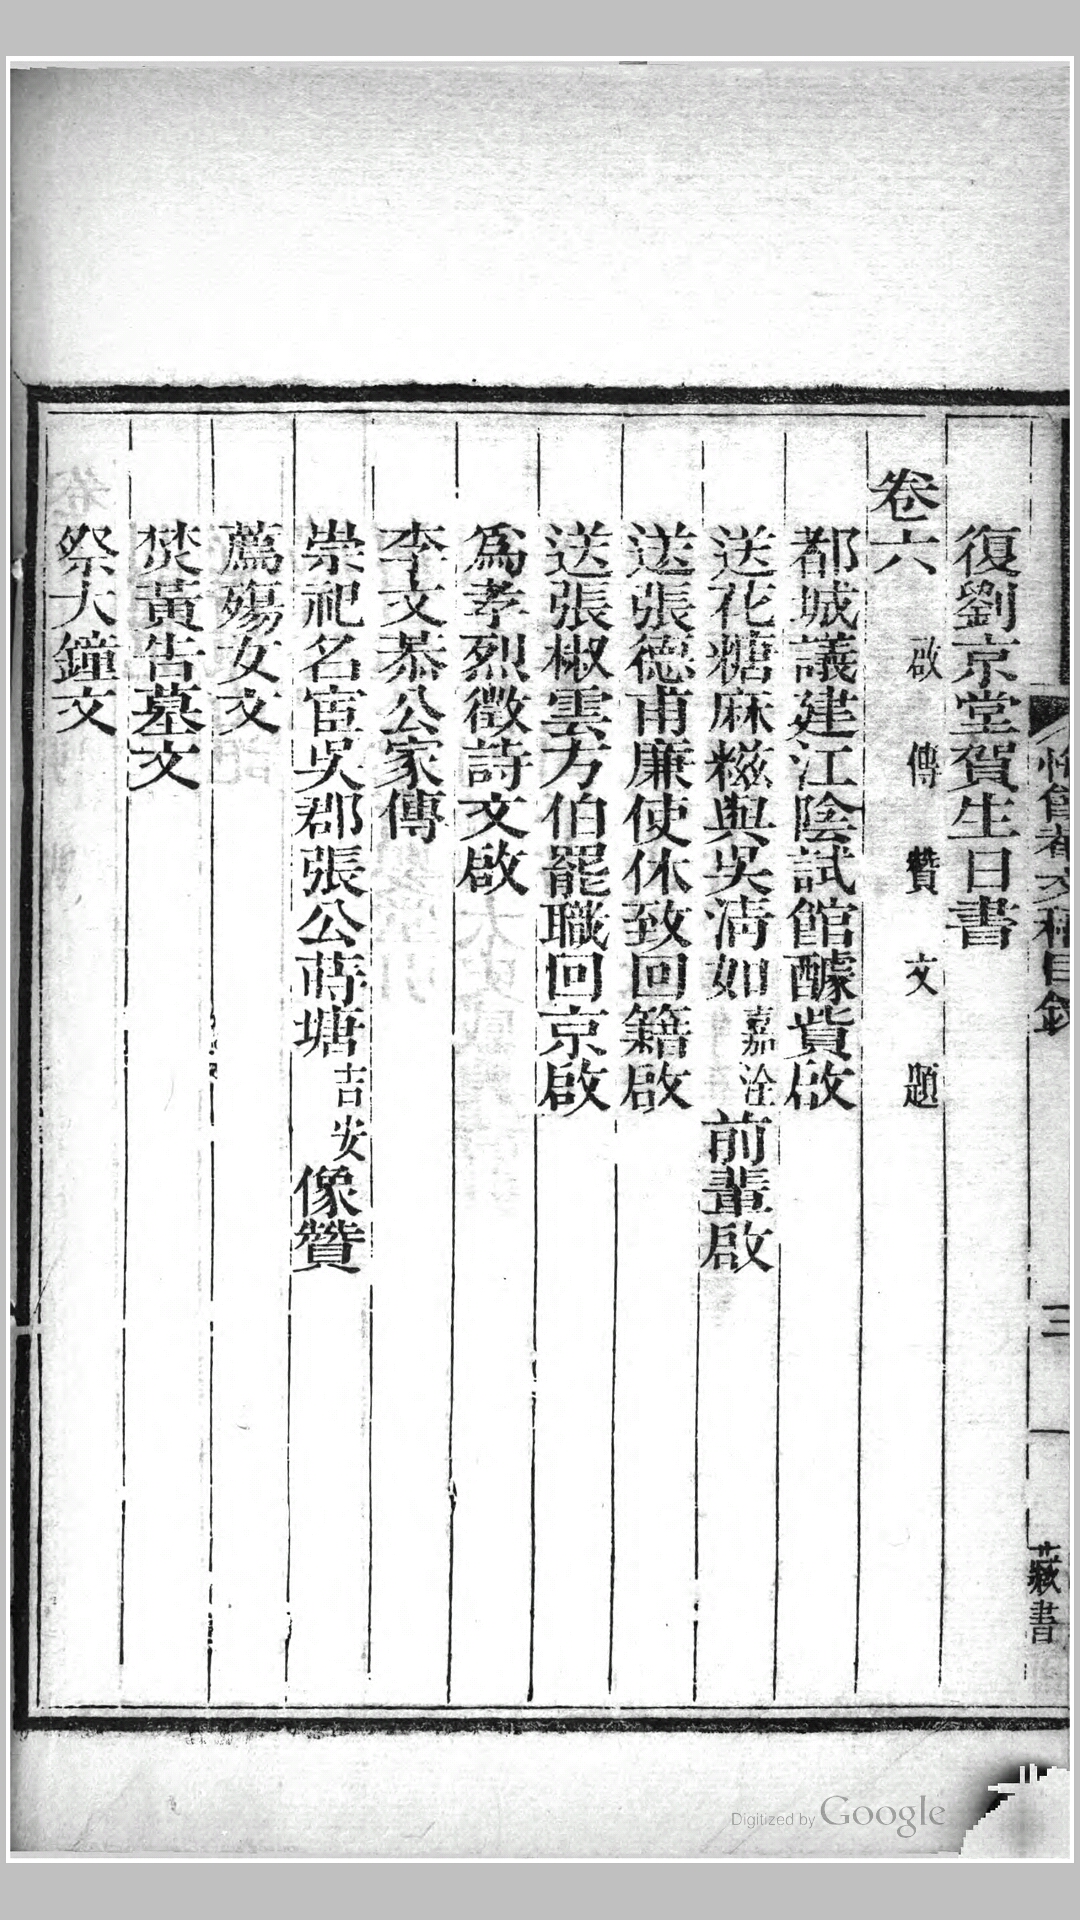 復劉京堂賀生日書
卷六 啟 傳 贊 文 題
都城議建江陰試館醵貲啟
送花糖麻糍與吳清如嘉洤前輩啟
送張德甫廉使休致回籍啟
送張椒雲方伯罷職回京啟
爲孝烈徵詩文啟
李文恭公家傳
崇祀名宦吳郡張公蒔塘吉安像贊
薦殤女文
焚黃告墓文
祭大鐘文
文稿目錄
三
蔌書
Digitized by Google